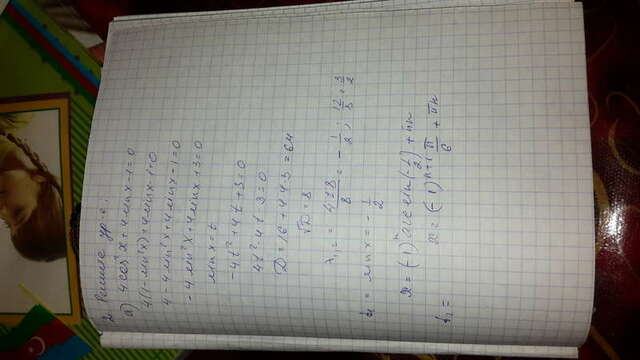 2. Решите ур-е:
а) 4cos²x+4sinx-1=0
4(1-sin²x)+4sinx-1=0
4-4sin²x+4sinx-1=0
-4sin²x+4sinx+3=0
sinx=t
-4t²+4t+3=0
4t²-4t-3=0
D=16+4·4·3=64
√D=8
= 4±8/8 = -1/2; 12/8=3/2
t₁= sinx=-1/2
x=(-1)ⁿ arcsin(-1/2)+πn
x=(-1)ⁿ⁺¹ π/6+πn
t₂=